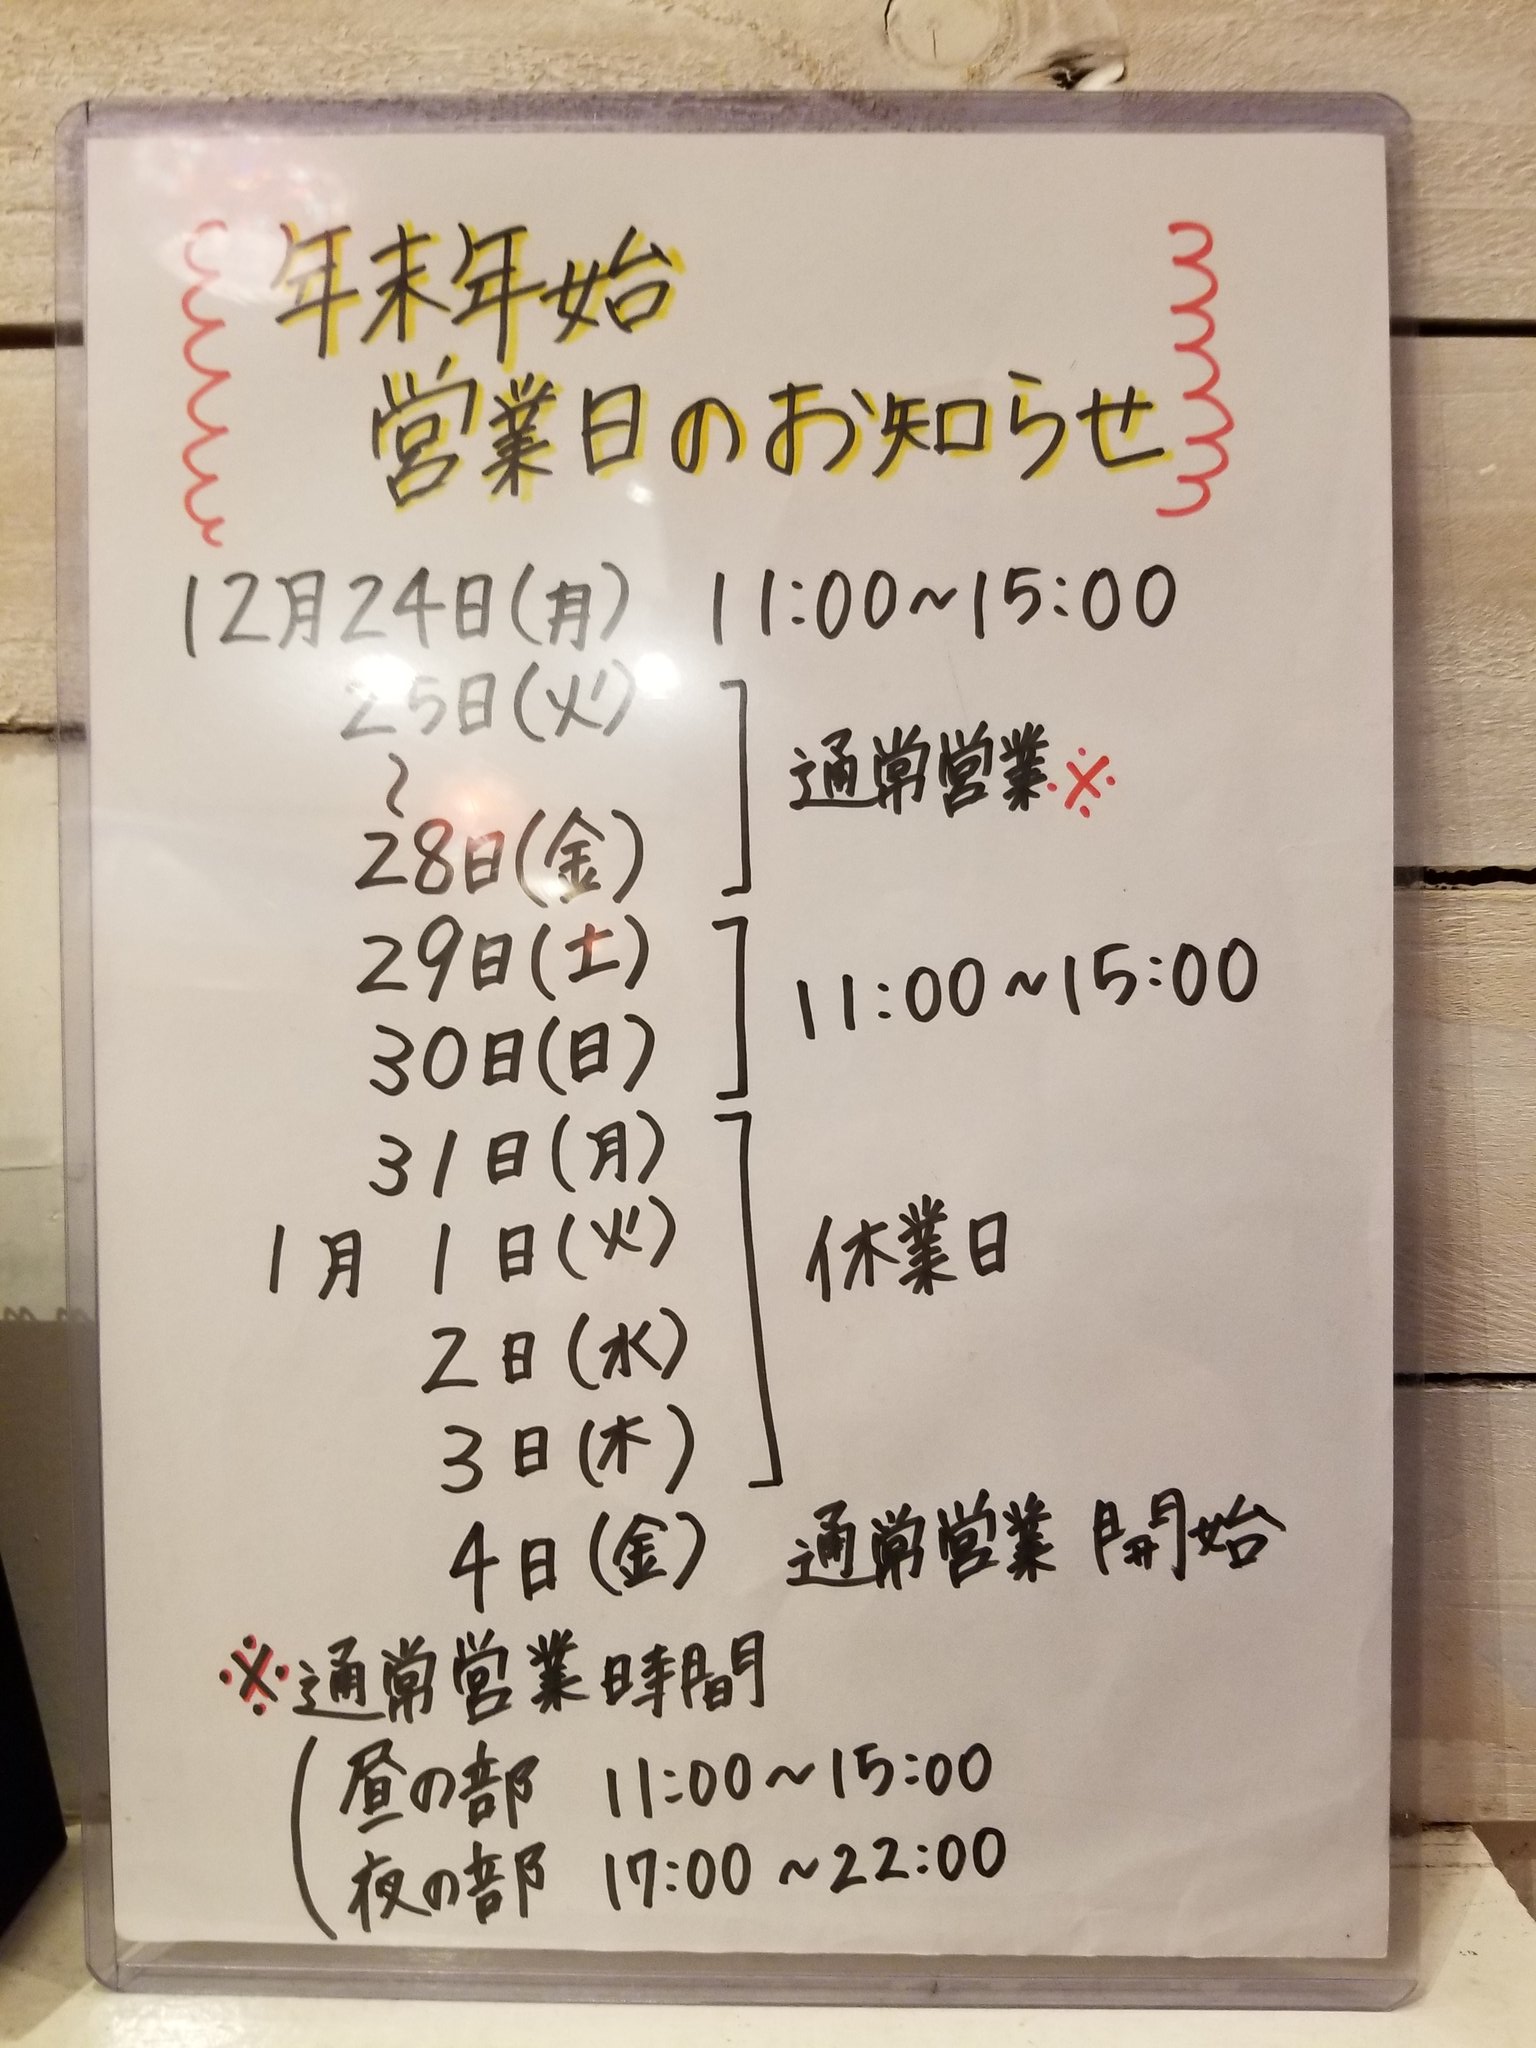 年末年始
営業日のお知らせ
12月24日(月) 11:00~15:00
25日(火)
〜
28日(金)
通常営業※
29日(土)
30日(日)
11:00~15:00
31日(月)
1月 1日(火)
2日(水)
3日(木)
休業日
4日(金) 通常営業 開始
※通常営業時間
昼の部 11:00~15:00
夜の部 17:00~22:00